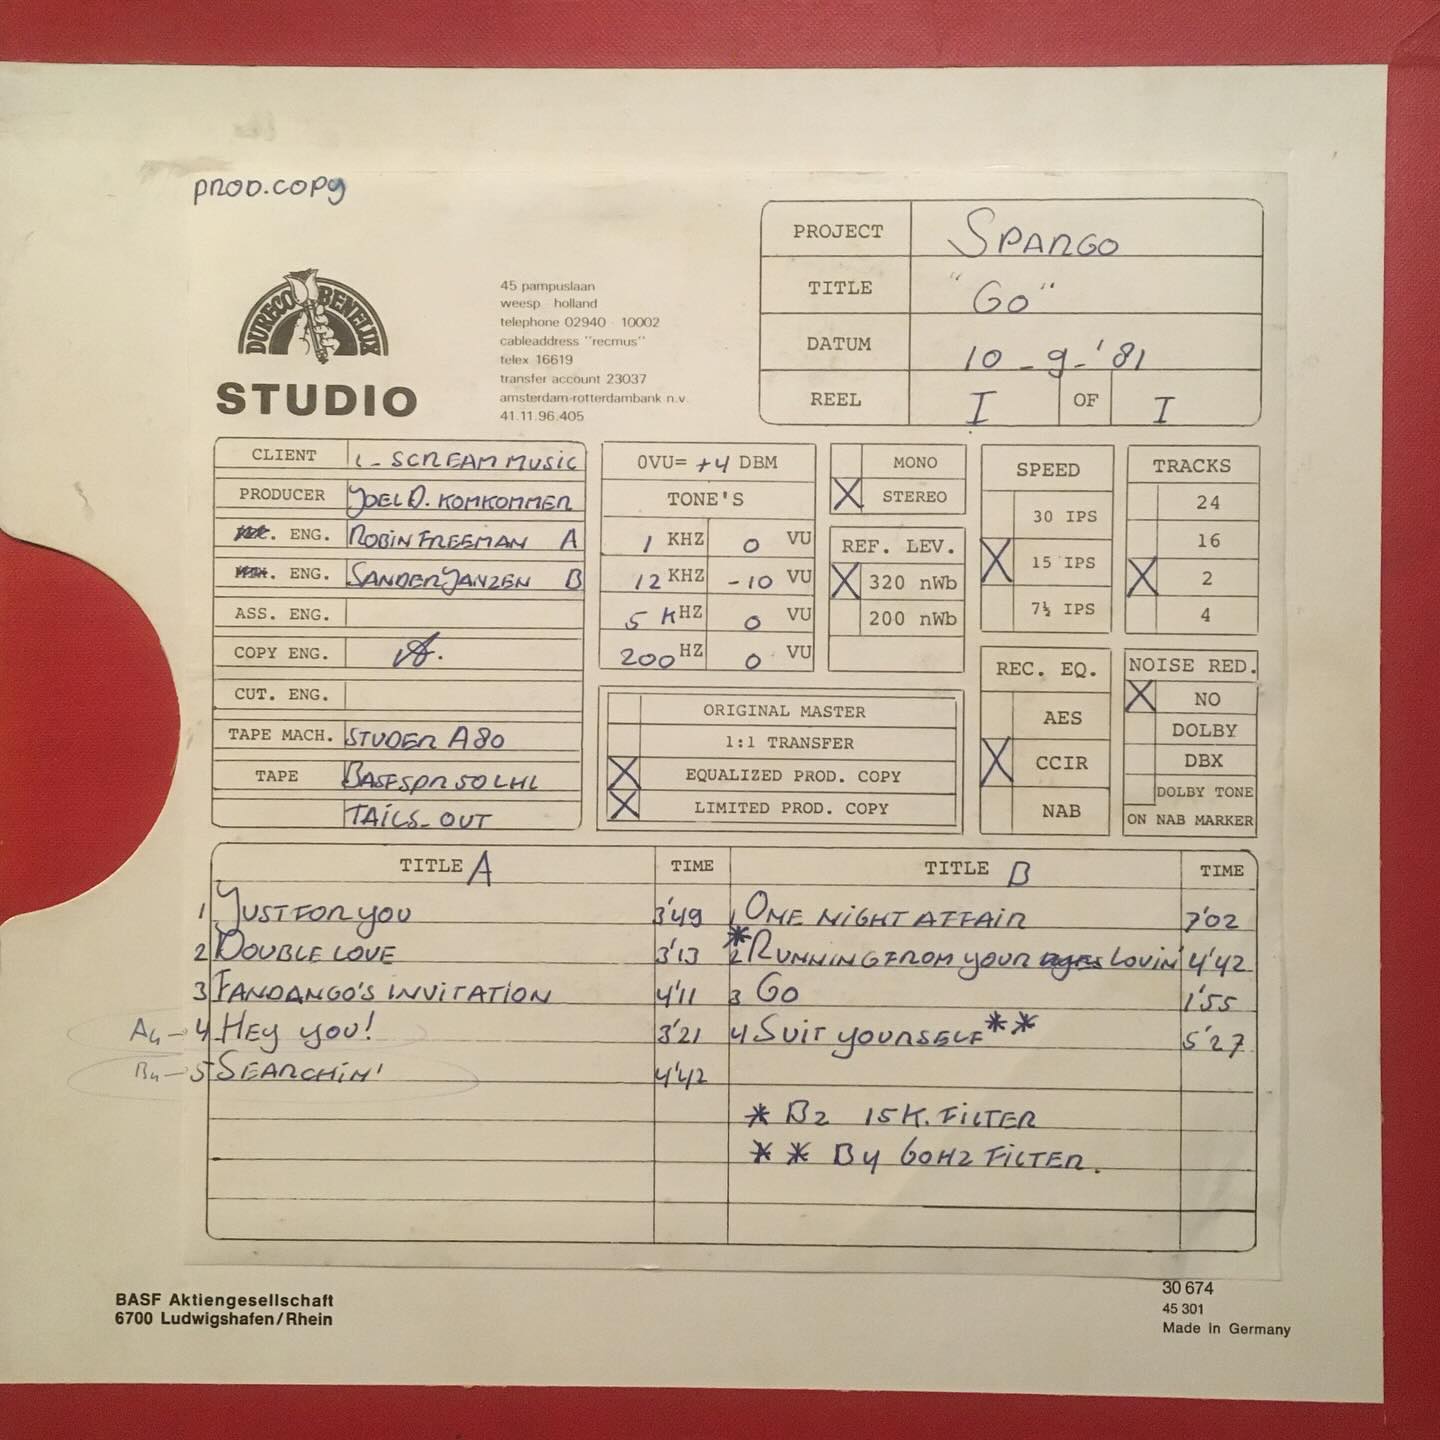 PROD.COPY
DURECO BENELUX
STUDIO
45 pampuslaan
weesp holland
telephone 02940 - 10002
cableaddress "recmus"
telex 16619
transfer account 23037
amsterdam-rotterdambank n.v.
41.11.96.405
PROJECT SPARGO
TITLE "GO"
DATUM 10-9-'81
REEL I OF I
CLIENT I-SCREAM MUSIC
PRODUCER JOEL D. KOMKOMMER
. ENG. ROBIN FREEMAN A
. ENG. SANDER JANZEN B
ASS. ENG.
COPY ENG.
CUT. ENG.
TAPE MACH. STUDER A80
TAPE BASF SPR 50 LHL
TAILS-OUT
0VU= +4 DBM
TONE'S
1 KHZ 0 VU
12 KHZ -10 VU
5 KHZ 0 VU
200 HZ 0 VU
MONO
X STEREO
REF. LEV.
X 320 nWb
200 nWb
SPEED
30 IPS
X 15 IPS
7½ IPS
TRACKS
24
16
X 2
4
ORIGINAL MASTER
1:1 TRANSFER
X EQUALIZED PROD. COPY
X LIMITED PROD. COPY
REC. EQ.
AES
X CCIR
NAB
NOISE RED.
X NO
DOLBY
DBX
DOLBY TONE
ON NAB MARKER
TITLE A TIME TITLE B TIME
1 JUST FOR YOU 3'49 1 ONE NIGHT AFFAIR 7'02
2 DOUBLE LOVE 3'13 *2 RUNNING FROM YOUR LOVIN' 4'42
3 FANDANGO'S INVITATION 4'11 3 GO 1'55
A4 - 4 HEY YOU! 3'21 4 SUIT YOURSELF** 5'27
B4 - 5 SEARCHIN' 4'42
* B2 15K. FILTER
** B4 60HZ FILTER.
BASF Aktiengesellschaft
6700 Ludwigshafen/Rhein
30 674
45 301
Made in Germany